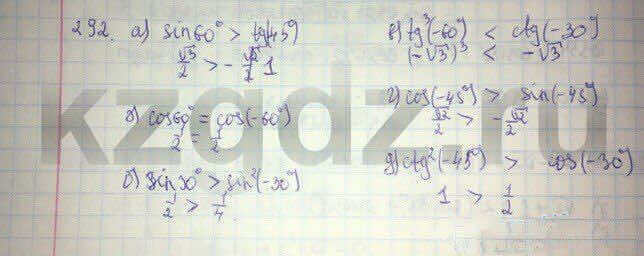 292. а) sin60° > tg(45°)
√3/2 > - √2/2 1
б) cos60° = cos(-60°)
1/2 = 1/2
б) sin30° > sin²(-30°)
1/2 > 1/4
в) tg³(-60°) < ctg(-30°)
(-√3)³ < -√3
г) cos(-45°) > sin(-45°)
√2/2 > - √2/2
д) ctg²(-45°) > cos(-30°)
1 > 1/2
kzgdz.ru